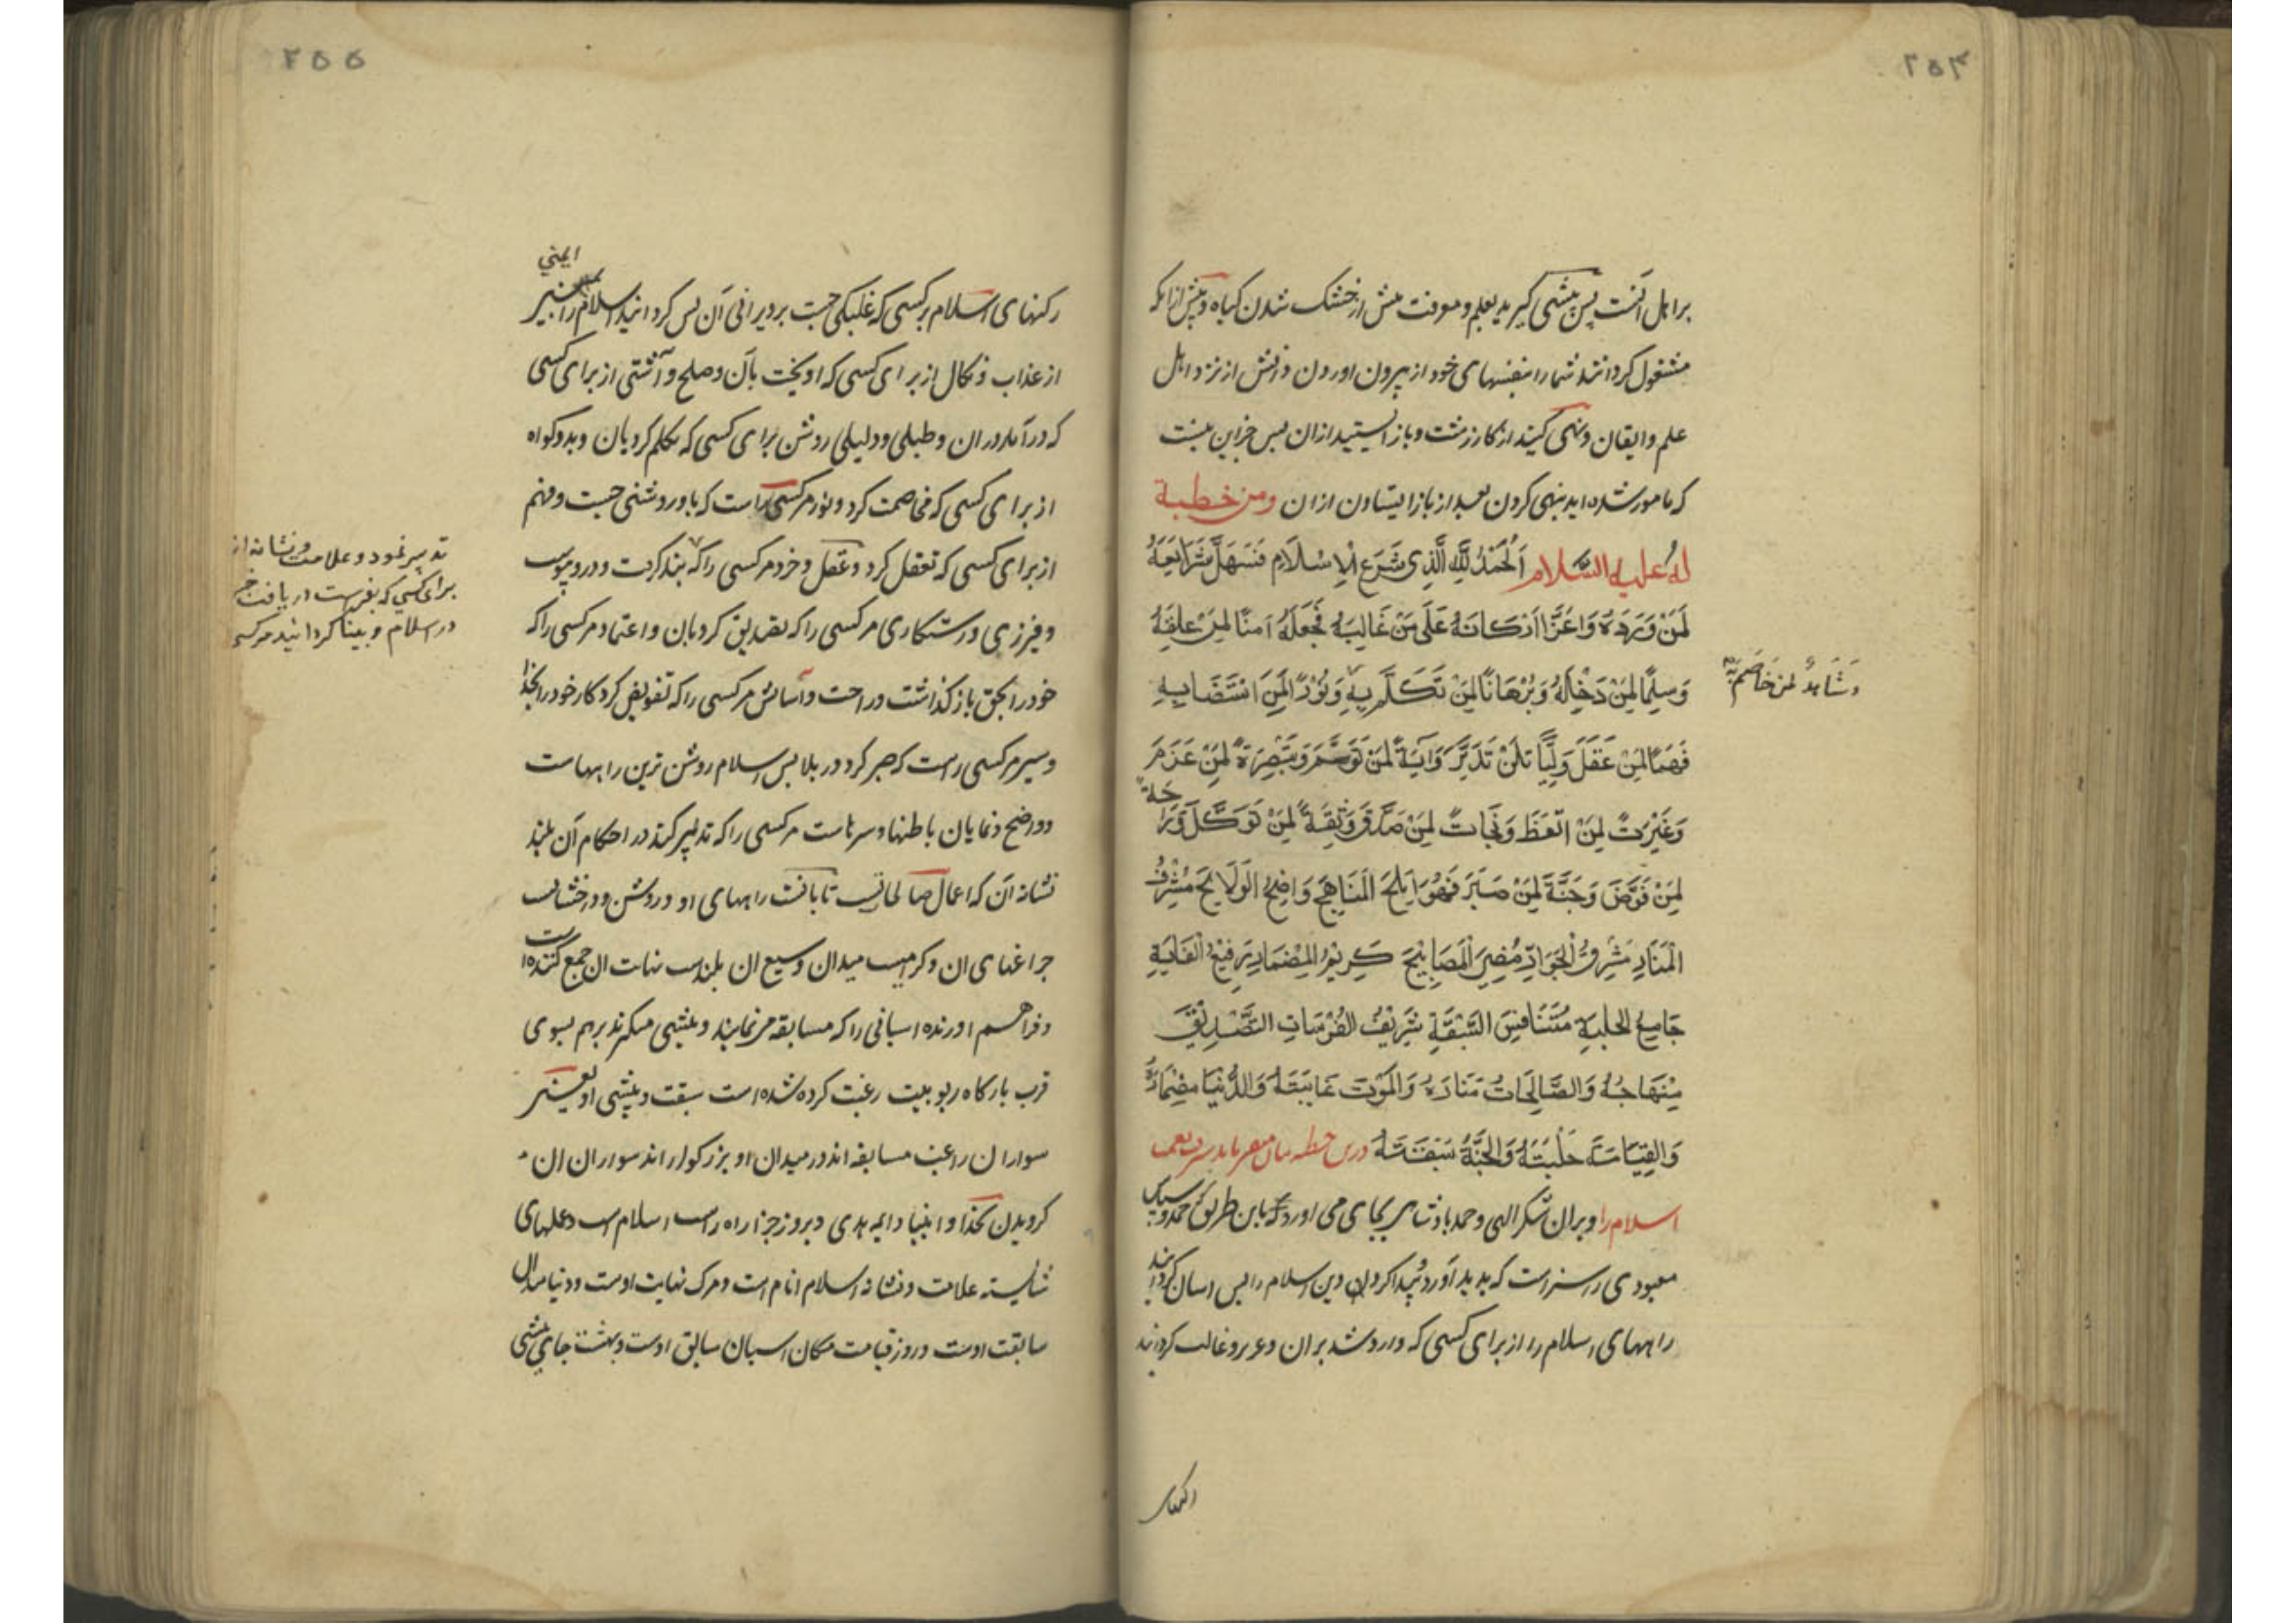 ۲۵۴
بر اهل آنست پس پیشی گیرید بعلم و معرفت پیش از خشک شدن گیاه و پیش از آنکه
مشغول گردانند شما را بنفسهای خود از بیرون اوردن دانش از نزد اهل
علم و ایقان و نهی کنید از کار زشت و باز ایستید از ان پس جز این نیست
که مامور شده اید بنهی کردن بعد از باز ایستادن از ان ومن خطبة
له عليه السلام اَلْحَمْدُ لِلّهِ الَّذِى شَرَعَ الْاِسْلَامَ فَسَهَّلَ شَرَايِعَهُ
لِمَنْ وَرَدَهُ وَاَعَزَّ اَرْكَانَهُ عَلَى مَنْ غَالَبَهُ فَجَعَلَهُ اَمْنًا لِمَنْ عَلِقَهُ
وَسِلْمًا لِمَنْ دَخَلَهُ وَبُرْهَانًا لِمَنْ تَكَلَّمَ بِهِ وَنُوْرًا لِمَنِ اسْتَضَاءَ بِهِ
وَشَاهِدًا لمن خَاصَمَ بِه
فَهْمًا لِمَنْ عَقَلَ وَلُبًّا لِمَنْ تَدَبَّرَ وَايَةً لِمَنْ تَوَسَّمَ وَتَبْصِرَةً لِمَنْ عَزَمَ
وَعِبْرَةً لِمَنِ اتَّعَظَ وَنَجَاةً لِمَنْ صَدَّقَ وَثِقَةً لِمَنْ تَوَكَّلَ وَرَاحَةً
لِمَنْ فَوَّضَ وَجُنَّةً لِمَنْ صَبَرَ فَهُوَ اَبْلَجُ الْمَنَاهِجِ وَاضِحُ الْوَلَايِجِ مُشْرِفُ
الْمَنَارِ مُشْرِقُ الْجَوَادِّ مُضِىءُ الْمَصَابِيْحِ كَرِيْمُ الْمِضْمَارِ رَفِيْعُ الْغَايَةِ
جَامِعُ الْحَلْبَةِ مُتَنَافِسُ السَّبْقَةِ شَرِيْفُ الْفُرْسَانِ التَّصْدِيْقُ
مِنْهَاجُهُ وَالصَّالِحَاتُ مَنَارُهُ وَالْمَوْتُ غَايَتُهُ وَالدُّنْيَا مِضْمَارُهُ
وَالْقِيَامَةُ حَلْبَتُهُ وَالْجَنَّةُ سَبْقَتُهُ درین خطبه بیان میفرماید
اسلام را و بران شکر الهی و حمد پادشاهی بجای می اورد که باین طریق که حمد و سپاس
معبودی را سزاست که پدید آورد و پیدا کرد دین اسلام را پس اسان گردانید
راههای اسلام را از برای کسی که وارد شد بران و عزیز و غالب گردانید
۲۵۵
رکنهای اسلام بر کسی که غلبگی جست بر ویرانی آن پس گردانید اسلام را
ایمنی
از عذاب و نکال از برای کسی که اویخت بآن و صلح و آشتی از برای کسی
که درآمد در ان و دلیلی روشن برای کسی که تکلم کرد بان و بدو گواه
از برای کسی که مخاصمت کرد و نور مر کسی راست که باو روشنی جست و فهم
از برای کسی که تعقل کرد و عقل و خرد مر کسی را که
تدبیر نمود و علامت و نشانه از
برای کسی که بفراست دریافت
در اسلام و بینا گردانید مر کسی
و فیروزی و رستگاری مر کسی را که تصدیق کرد بان و اعتماد مر کسی را که
خود را بحق باز گذاشت و راحت و آسایش مر کسی را که تفویض کرد کار خود را بخدا
و سپر مر کسی راست که صبر کرد در بلا پس اسلام روشن ترین راههاست
و واضح و نمایان باطنها و سرهاست مر کسی را که تدبر کند در احکام آن بلند
نشانه آن که اعمال صالحاتست تابانست راههای او و روشن و درخشانست
چراغهای ان و کرامیست میدان وسیع ان بلندست نهایت ان جمع کننده است
و فراهم اورنده اسبانی را که مسابقه می نمایند و پیشی میگیرند بر هم بسوی
قرب بارگاه ربوبیت رغبت کرده شده است سبقت و پیشی او یعنی
سواران راغب مسابقه اند در میدان او بزرگوارانند سواران ان
گرویدن بخدا و انبیا و ایمه هدی و بروز جزا راه راست اسلام است و عملهای
شایسته علامت و نشانه اسلام انام است و مرگ نهایت اوست و دنیا میدان
سابقت اوست و روز قیامت مکان اسبان سابق اوست و بهشت جای پیشی